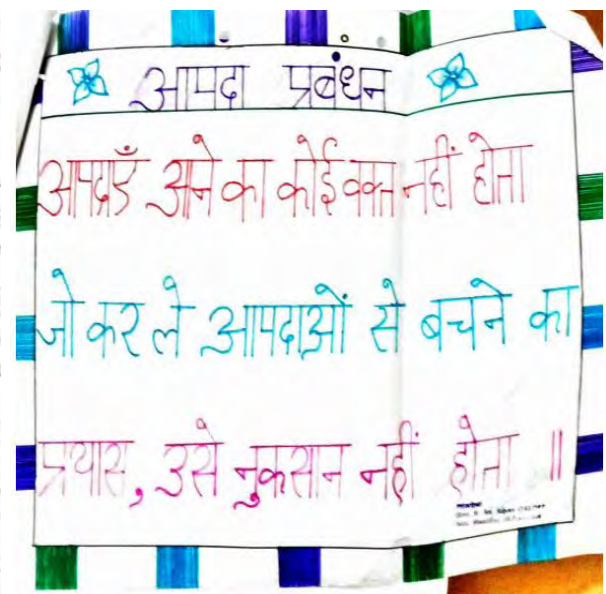 आपदा प्रबंधन
आपदाएँ आने का कोई वक्त नहीं होता
जो कर ले आपदाओं से बचने का
प्रयास, उसे नुकसान नहीं होता ॥